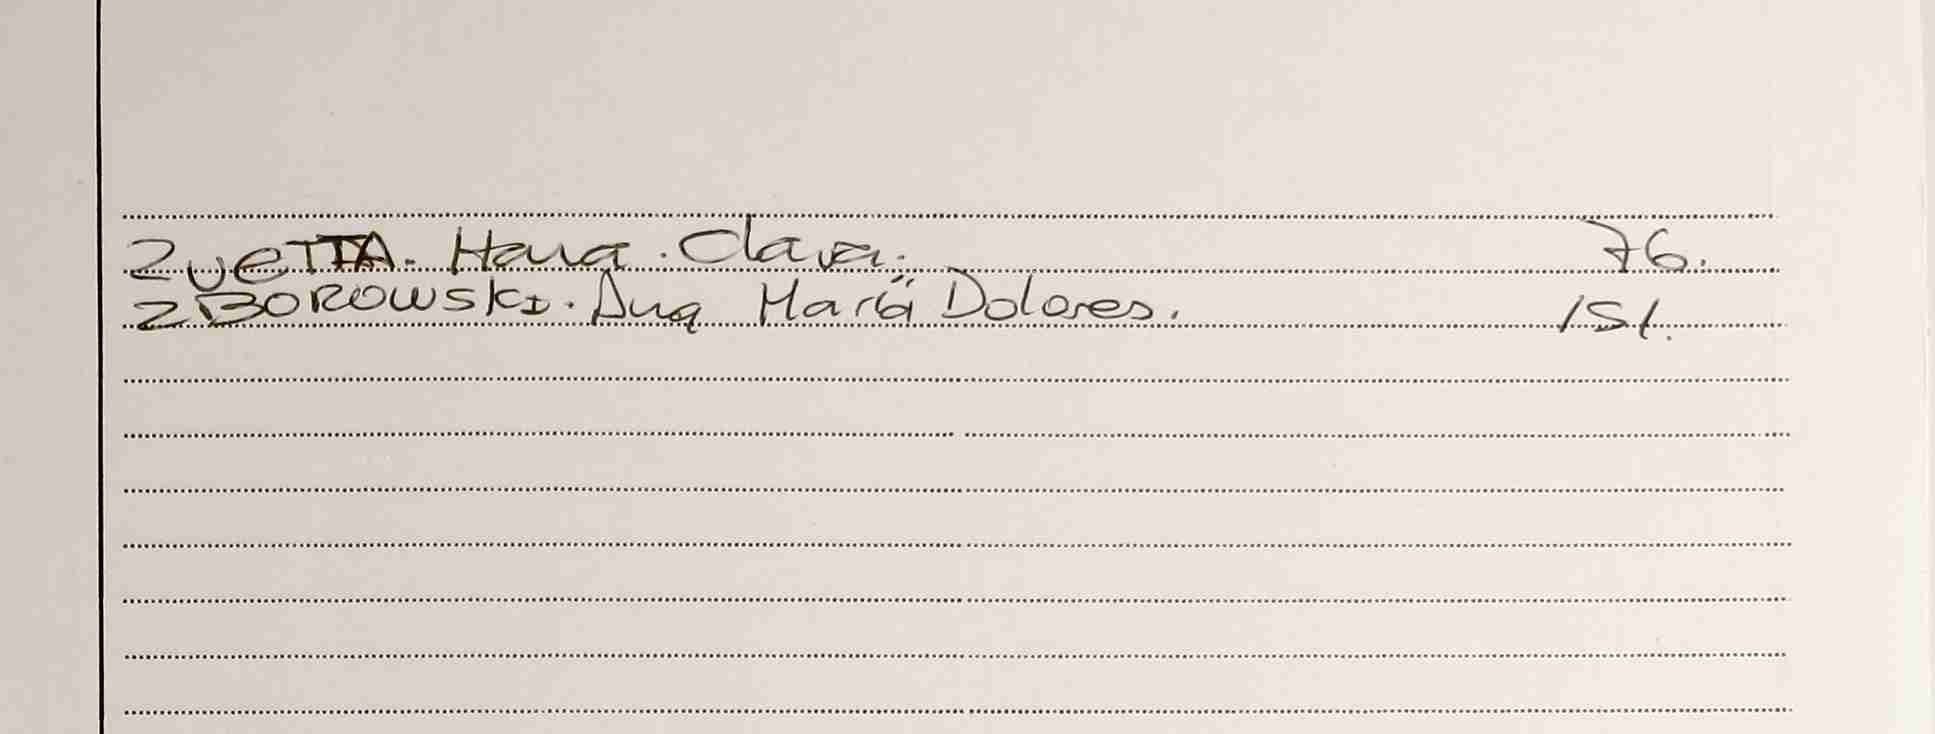 ZUETTA. Hana. Clara. 76.
ZBOROWSKI. Ana María Dolores. 151.